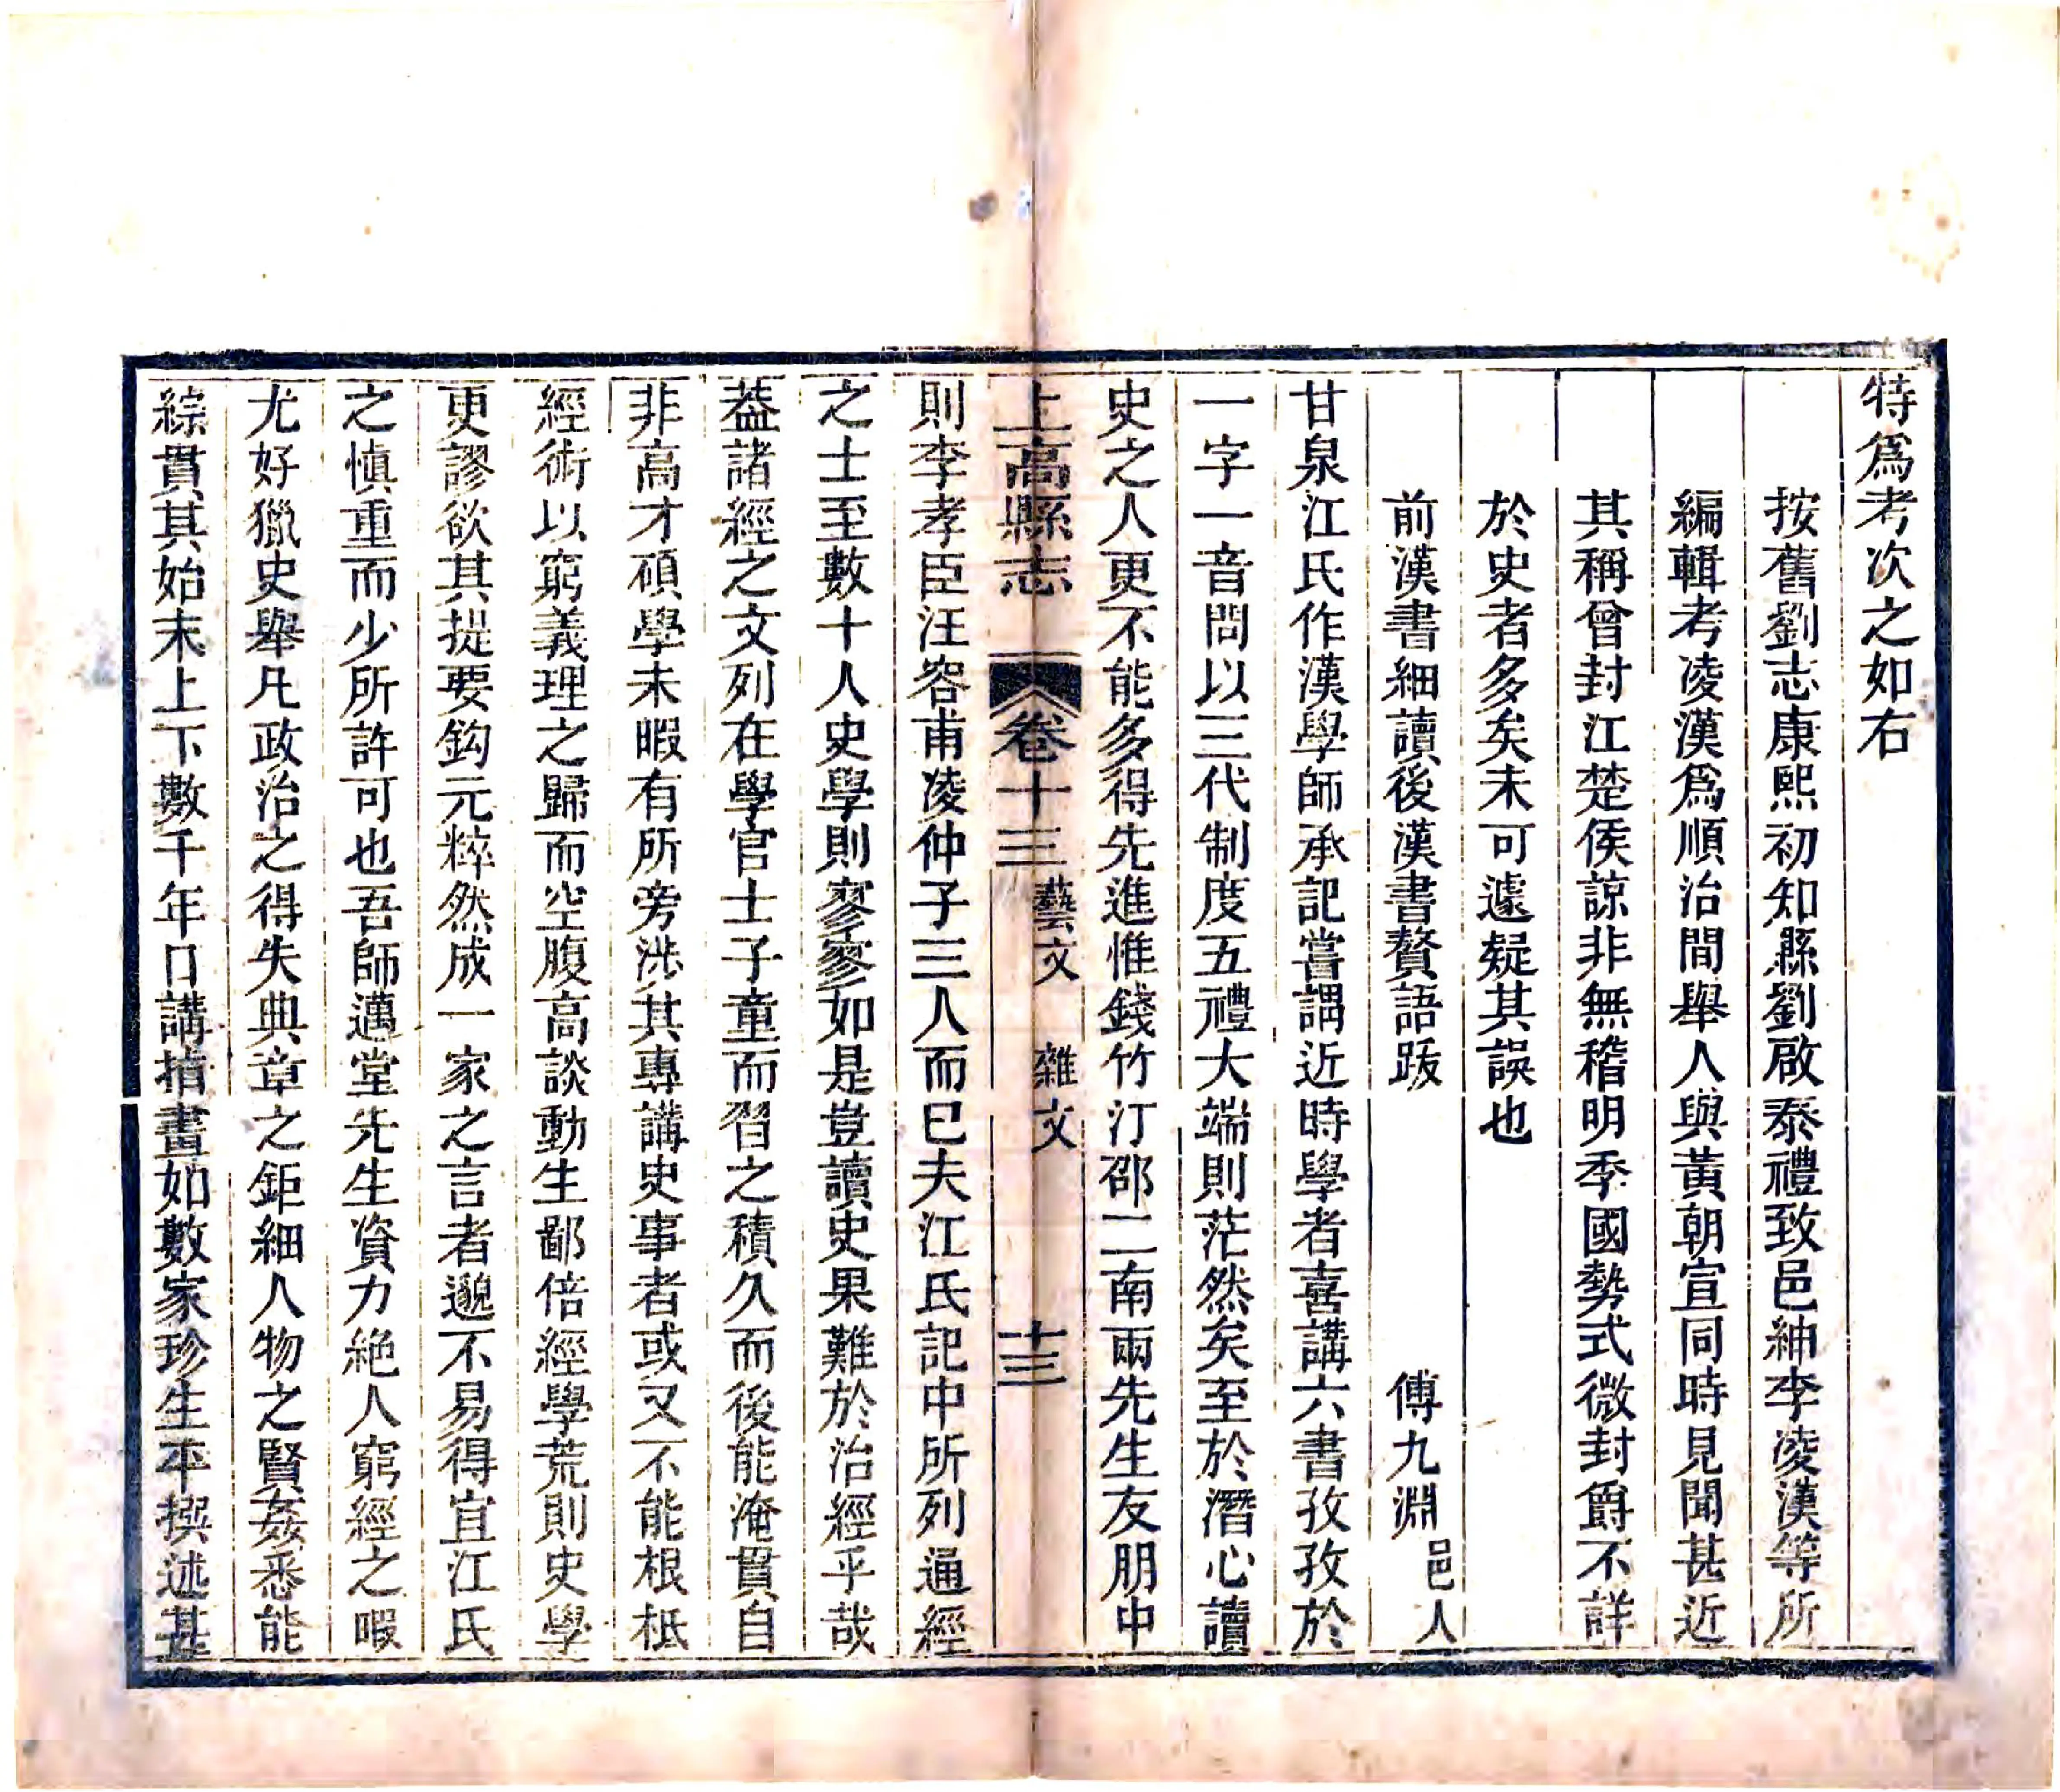 特爲考次之如右
按舊劉志康熙初知縣劉啟泰禮致邑紳李凌漢等所
編輯考凌漢爲順治間舉人與黃朝宣同時見聞甚近
其稱曾封江楚侯諒非無稽明季國勢式微封爵不詳
於史者多矣未可遽疑其誤也
前漢書細讀後漢書贅語跋 傅九淵邑人
甘泉江氏作漢學師承記嘗謂近時學者喜講六書孜孜於
一字一音問以三代制度五禮大端則茫然矣至於潛心讀
史之人更不能多得先進惟錢竹汀邵二南兩先生友朋中
上高縣志 卷十三 藝文 雜文 十三
則李孝臣汪容甫凌仲子三人而已夫江氏記中所列通經
之士至數十人史學則寥寥如是豈讀史果難於治經乎哉
葢諸經之文列在學官士子童而習之積久而後能淹貫自
非高才碩學未暇有所旁涉其專講史事者或又不能根柢
經術以窮義理之歸而空腹高談動生鄙倍經學荒則史學
更謬欲其提要鈎元粹然成一家之言者邈不易得宜江氏
之慎重而少所許可也吾師邁堂先生資力絶人窮經之暇
尤好獵史舉凡政治之得失典章之鉅細人物之賢姦悉能
綜貫其始末上下數千年口講指畫如數家珍生平撰述甚